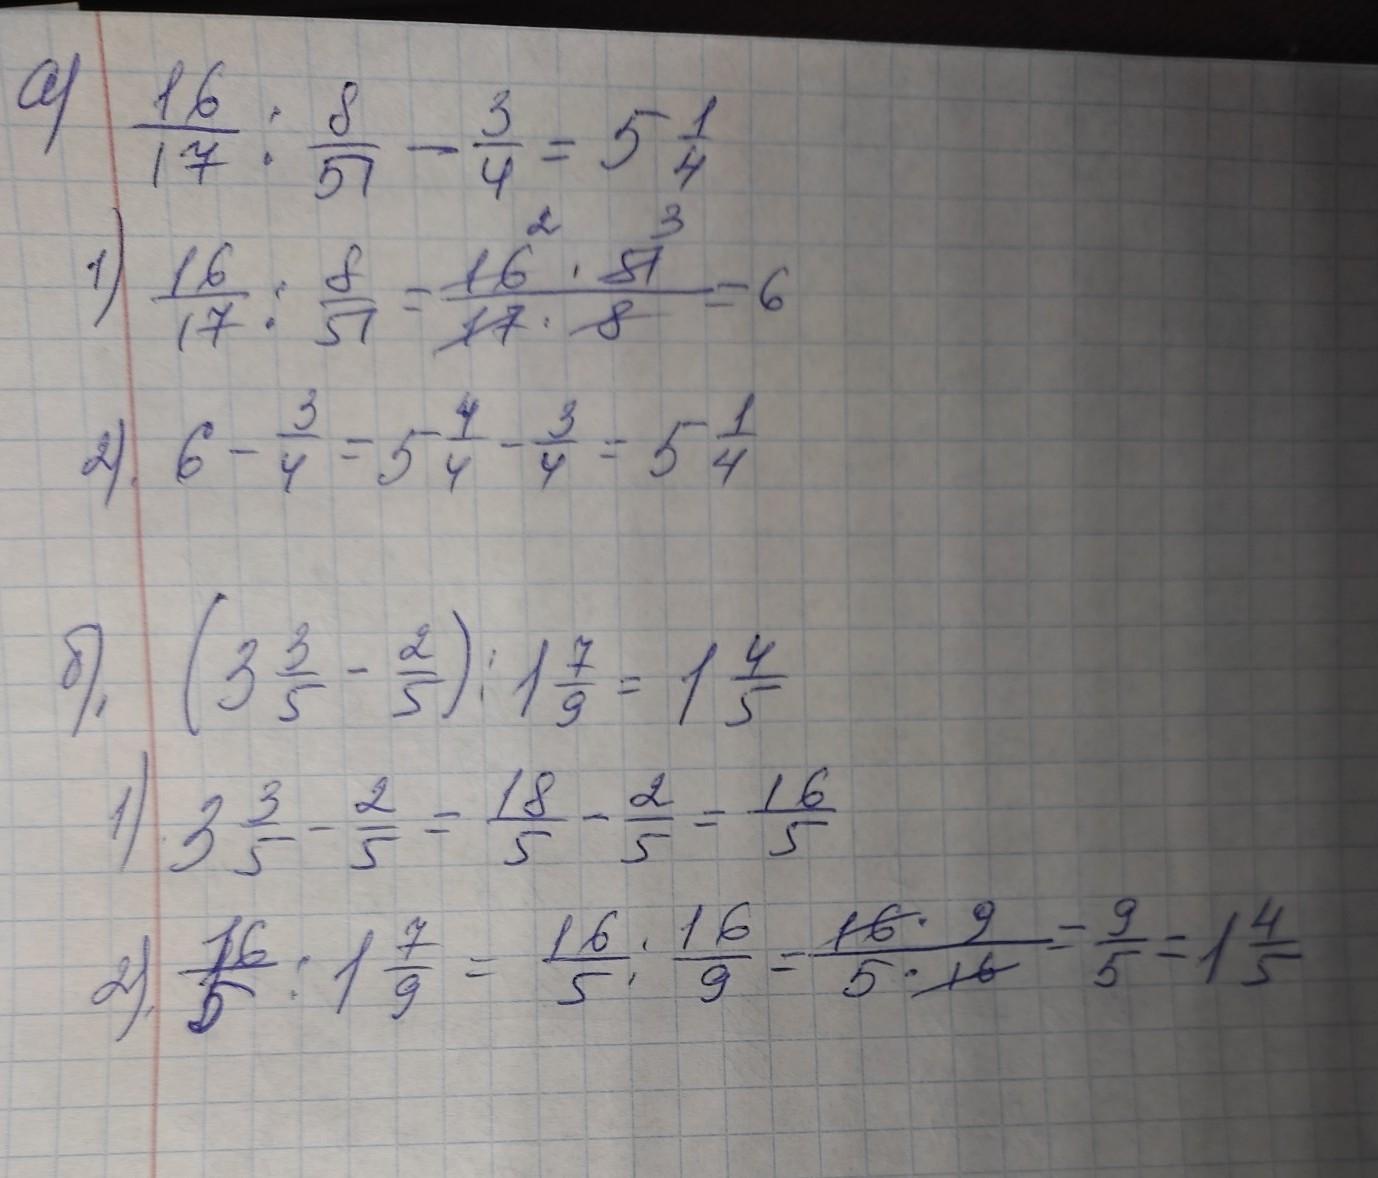 а) 16/17 : 8/51 - 3/4 = 5 1/4
1) 16/17 : 8/51 = 16² · 51³ / 17 · 8 = 6
2). 6 - 3/4 = 5 4/4 - 3/4 = 5 1/4
б). (3 3/5 - 2/5) : 1 7/9 = 1 4/5
1) 3 3/5 - 2/5 = 18/5 - 2/5 = 16/5
2). 16/5 : 1 7/9 = 16/5 : 16/9 = 16 · 9 / 5 · 16 = 9/5 = 1 4/5